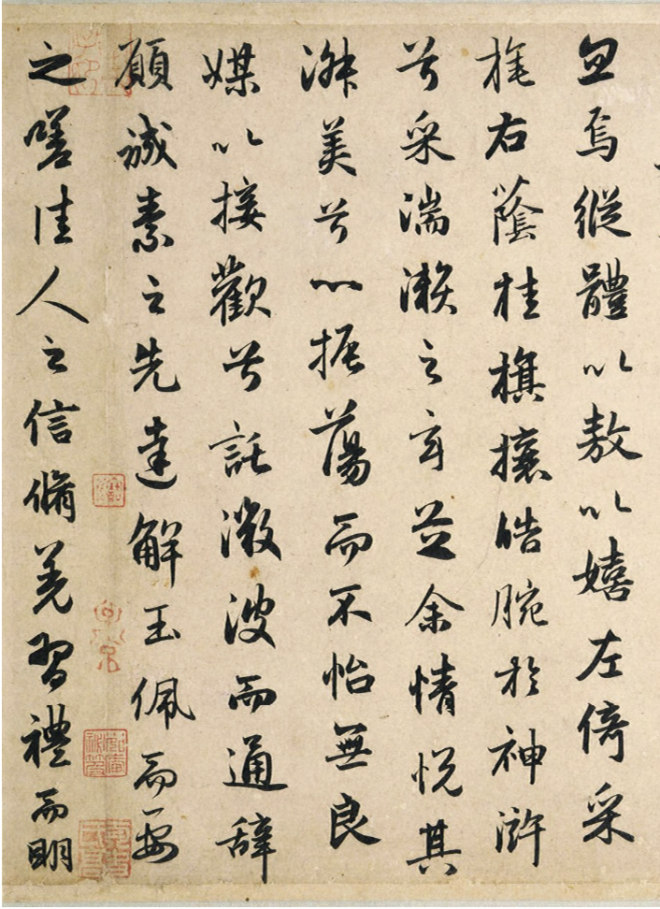 忽焉縱體以敖以嬉左倚采
旄右蔭桂旗攘皓腕於神滸
兮采湍瀨之玄芝余情悅其
淑美兮心振蕩而不怡無良
媒以接歡兮託微波而通辞
願誠素之先達解玉佩而要
之嗟佳人之信脩羌習禮而明